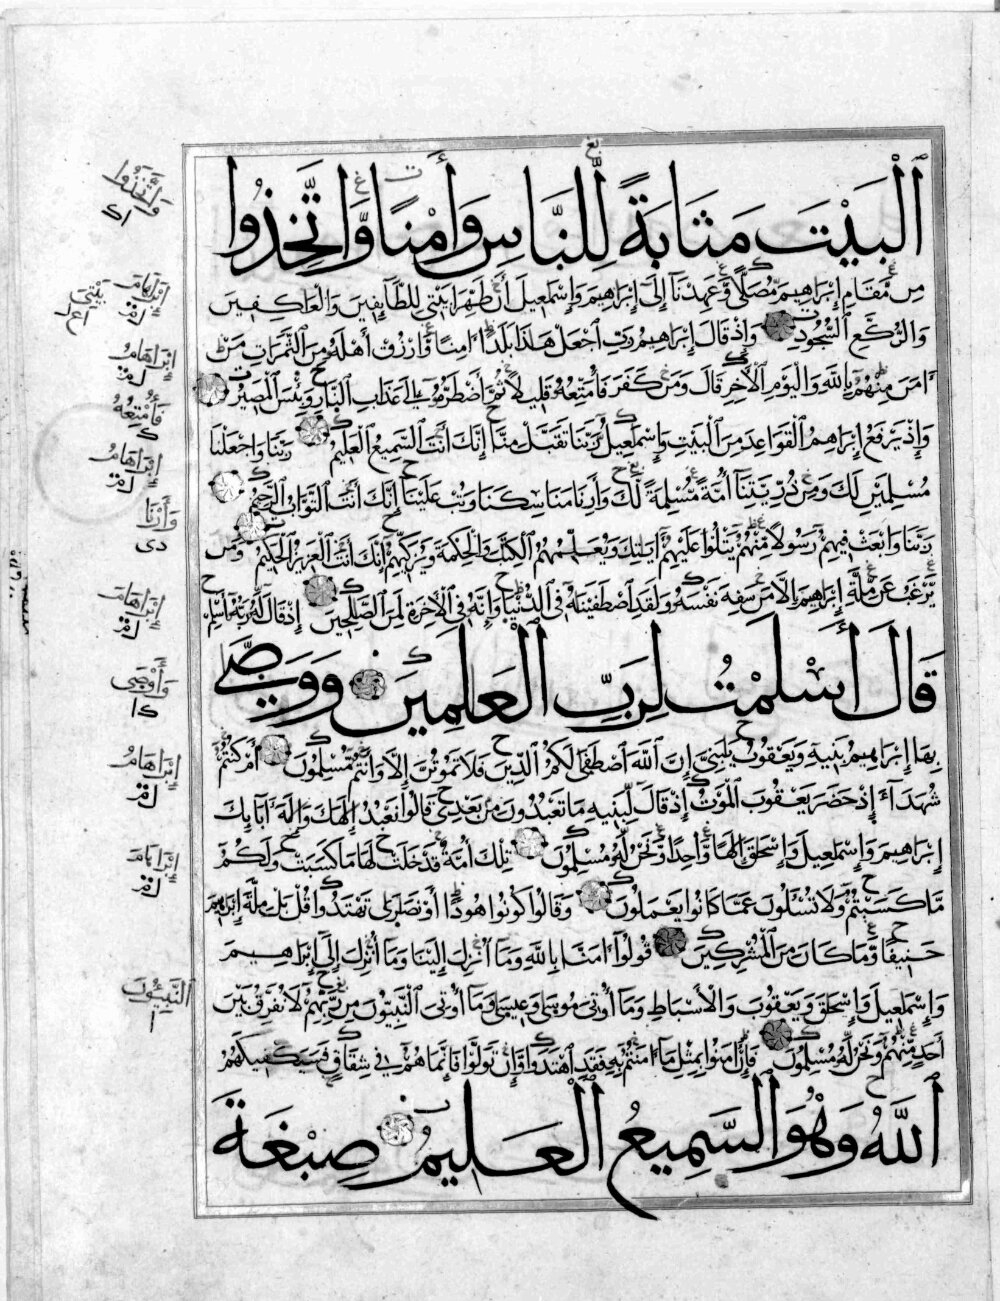 ٱلْبَيْتَ مَثَابَةً لِّلنَّاسِ وَأَمْنًا وَّاتَّخِذُوا
مِن مَّقَامِ إِبْرَاهِيمَ مُصَلًّى وَعَهِدْنَا إِلَى إِبْرَاهِيمَ وَإِسْمَعِيلَ أَن طَهِّرَا بَيْتِيَ لِلطَّآئِفِينَ وَالْعَاكِفِينَ
وَالرُّكَّعِ السُّجُودِ وَإِذْ قَالَ إِبْرَاهِيمُ رَبِّ اجْعَلْ هَذَا بَلَدًا ءَامِنًا وَّارْزُقْ أَهْلَهُ مِنَ الثَّمَرَاتِ مَنْ
ءَامَنَ مِنْهُمْ بِاللَّهِ وَالْيَوْمِ الْآخِرِ قَالَ وَمَن كَفَرَ فَأُمَتِّعُهُ قَلِيلًا ثُمَّ أَضْطَرُّهُ إِلَى عَذَابِ النَّارِ وَبِئْسَ الْمَصِيرُ
وَإِذْ يَرْفَعُ إِبْرَاهِيمُ الْقَوَاعِدَ مِنَ الْبَيْتِ وَإِسْمَعِيلُ رَبَّنَا تَقَبَّلْ مِنَّا إِنَّكَ أَنتَ السَّمِيعُ الْعَلِيمُ رَبَّنَا وَاجْعَلْنَا
مُسْلِمَيْنِ لَكَ وَمِن ذُرِّيَّتِنَآ أُمَّةً مُّسْلِمَةً لَّكَ وَأَرِنَا مَنَاسِكَنَا وَتُبْ عَلَيْنَآ إِنَّكَ أَنتَ التَّوَّابُ الرَّحِيمُ
رَبَّنَا وَابْعَثْ فِيهِمْ رَسُولًا مِّنْهُمْ يَتْلُوا عَلَيْهِمْ آيَاتِكَ وَيُعَلِّمُهُمُ الْكِتَابَ وَالْحِكْمَةَ وَيُزَكِّيهِمْ إِنَّكَ أَنتَ الْعَزِيزُ الْحَكِيمُ وَمَن
يَّرْغَبُ عَن مِّلَّةِ إِبْرَاهِيمَ إِلَّا مَن سَفِهَ نَفْسَهُ وَلَقَدِ اصْطَفَيْنَاهُ فِي الدُّنْيَا وَإِنَّهُ فِي الْآخِرَةِ لَمِنَ الصَّالِحِينَ إِذْ قَالَ لَهُ رَبُّهُ أَسْلِمْ
قَالَ أَسْلَمْتُ لِرَبِّ الْعَالَمِينَ وَوَصَّى
بِهَا إِبْرَاهِيمُ بَنِيهِ وَيَعْقُوبُ يَابَنِيَّ إِنَّ اللَّهَ اصْطَفَى لَكُمُ الدِّينَ فَلَا تَمُوتُنَّ إِلَّا وَأَنتُم مُّسْلِمُونَ أَمْ كُنتُمْ
شُهَدَآءَ إِذْ حَضَرَ يَعْقُوبَ الْمَوْتُ إِذْ قَالَ لِبَنِيهِ مَا تَعْبُدُونَ مِن بَعْدِي قَالُوا نَعْبُدُ إِلَهَكَ وَإِلَهَ ءَابَآئِكَ
إِبْرَاهِيمَ وَإِسْمَعِيلَ وَإِسْحَاقَ إِلَهًا وَّاحِدًا وَّنَحْنُ لَهُ مُسْلِمُونَ تِلْكَ أُمَّةٌ قَدْ خَلَتْ لَهَا مَا كَسَبَتْ وَلَكُم
مَّا كَسَبْتُمْ وَلَا تُسْئَلُونَ عَمَّا كَانُوا يَعْمَلُونَ وَقَالُوا كُونُوا هُودًا أَوْ نَصَارَى تَهْتَدُوا قُلْ بَلْ مِلَّةَ إِبْرَاهِيمَ
حَنِيفًا وَّمَا كَانَ مِنَ الْمُشْرِكِينَ قُولُوا ءَامَنَّا بِاللَّهِ وَمَآ أُنزِلَ إِلَيْنَا وَمَآ أُنزِلَ إِلَى إِبْرَاهِيمَ
وَإِسْمَعِيلَ وَإِسْحَاقَ وَيَعْقُوبَ وَالْأَسْبَاطِ وَمَآ أُوتِيَ مُوسَى وَعِيسَى وَمَآ أُوتِيَ النَّبِيُّونَ مِن رَّبِّهِمْ لَا نُفَرِّقُ بَيْنَ
أَحَدٍ مِّنْهُمْ وَنَحْنُ لَهُ مُسْلِمُونَ فَإِنْ ءَامَنُوا بِمِثْلِ مَآ ءَامَنتُم بِهِ فَقَدِ اهْتَدَوا وَّإِن تَوَلَّوْا فَإِنَّمَا هُمْ فِي شِقَاقٍ فَسَيَكْفِيكَهُمُ
ٱللَّهُ وَهُوَ السَّمِيعُ الْعَلِيمُ صِبْغَةَ
وَاتَّخَذُوا
اك
إِبْرَاهَامَ
بَيْتِيَ
إِبْرَاهَامُ
فَأُمْتِعُهُ
ك
إِبْرَاهَامُ
وَأَرْنَا
دى
إِبْرَاهَامَ
وَأَوْصَى
كا
إِبْرَاهَامُ
إِبْرَاهَامَ
النَّبِيئُونَ
ا